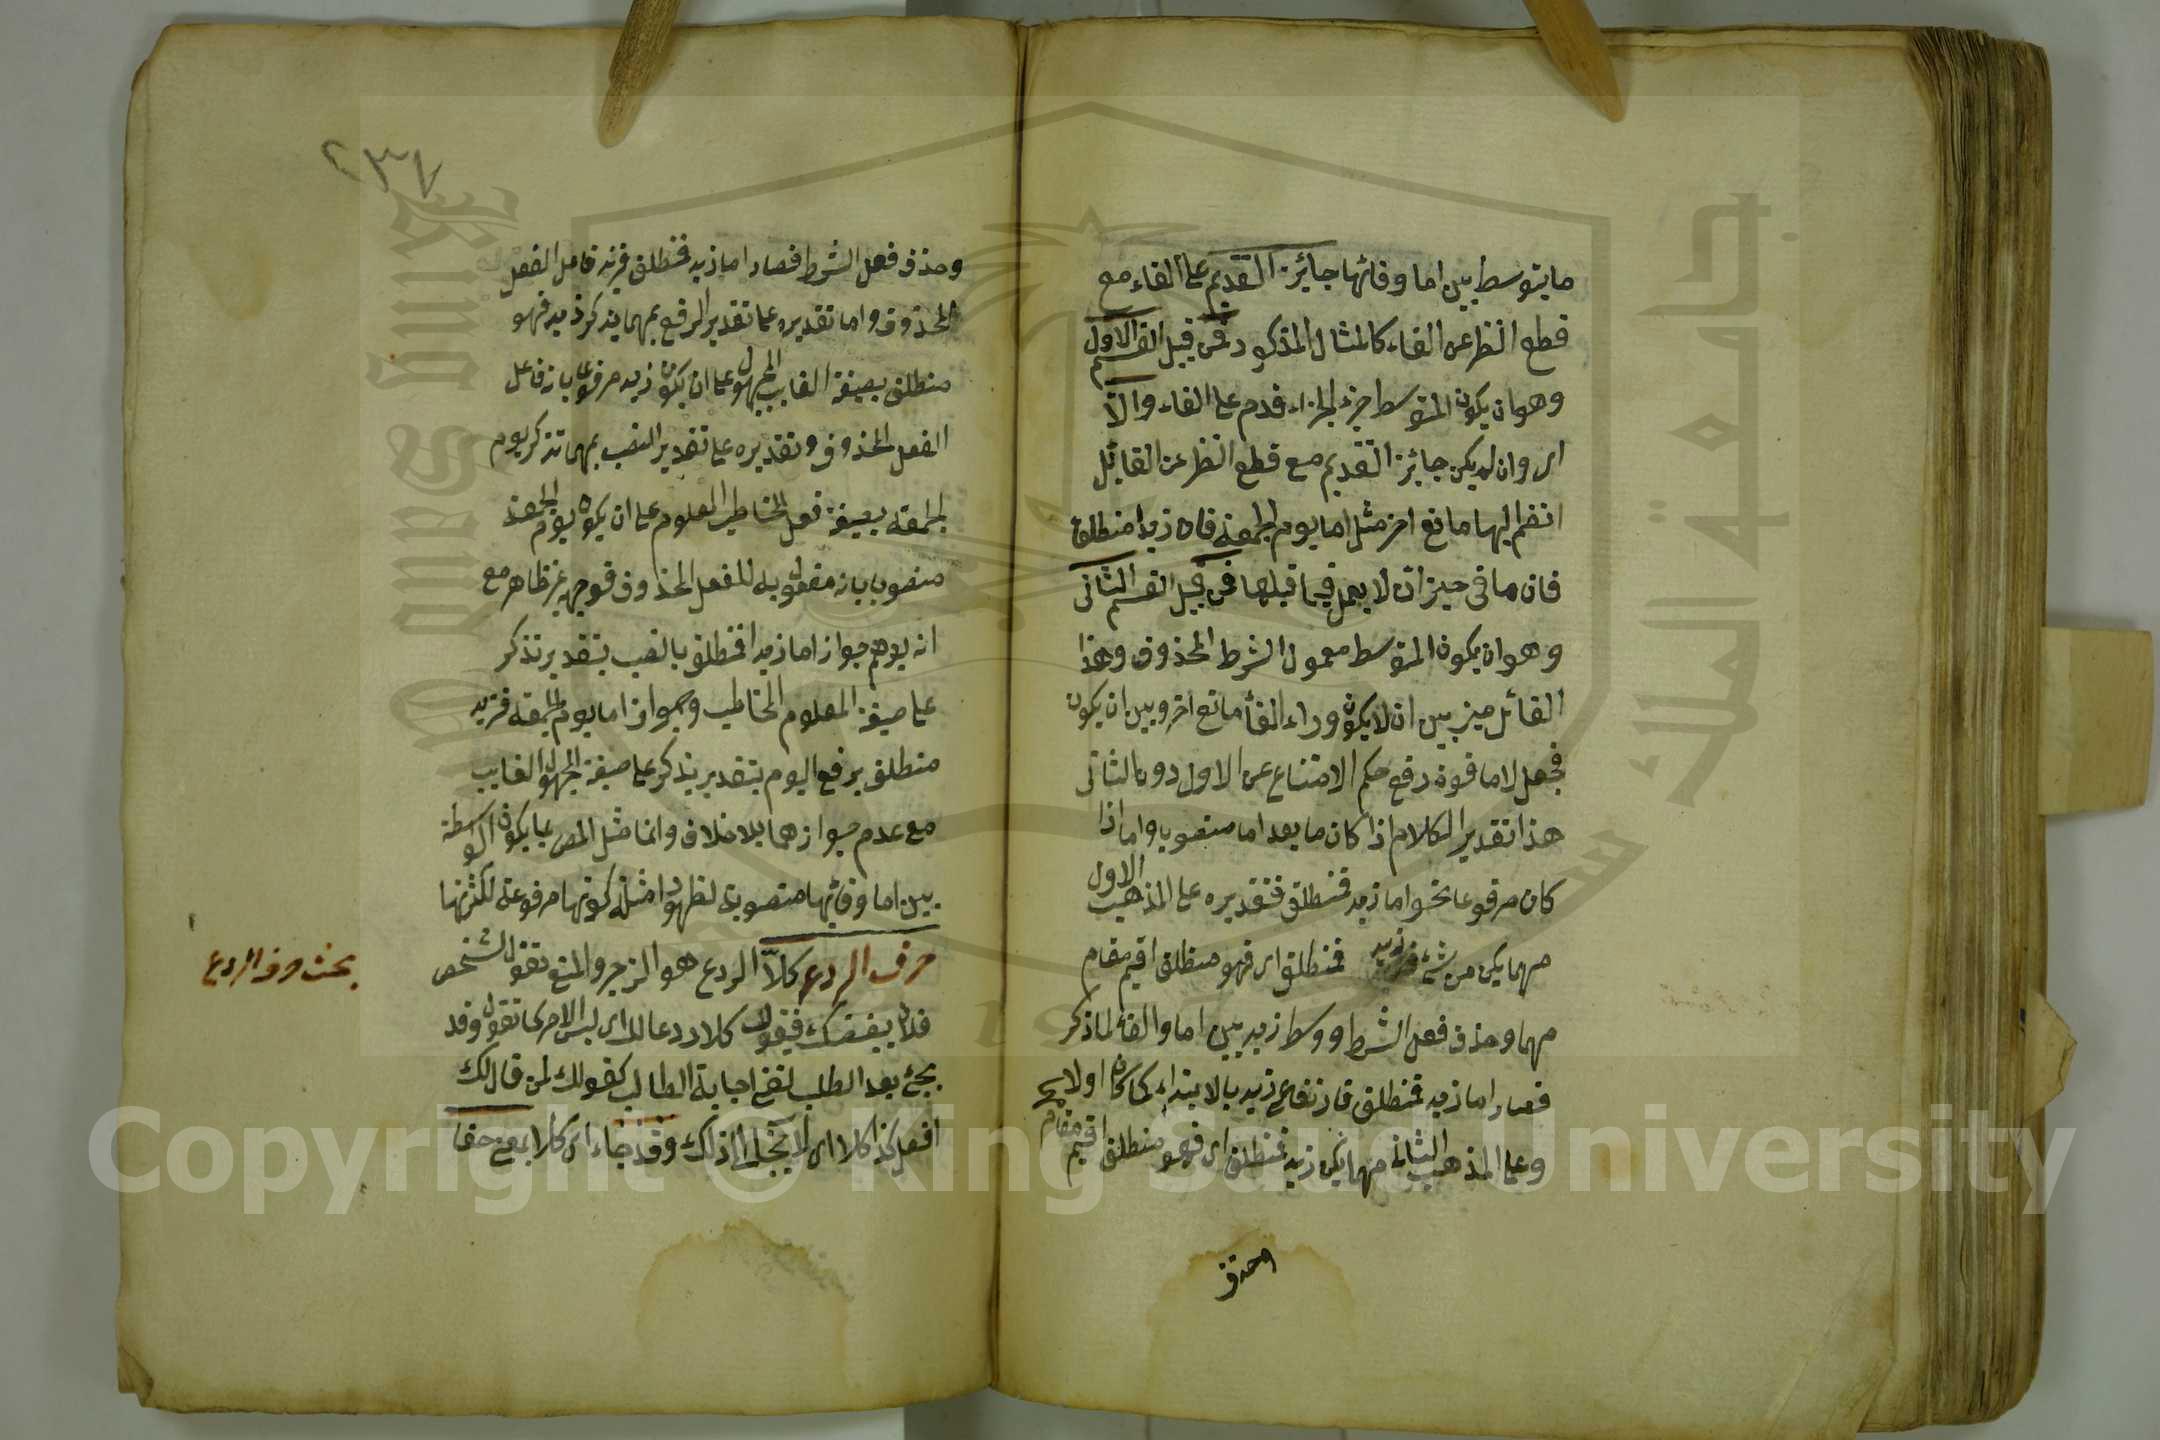 ما يتوسط بين اما وفائها جائز التقديم على الفاء مع
قطع النظر عن الفاء كالمثال المذكور فمن قبيل القسم الاول
وهو ان يكون المتوسط جزء الجزاء قدم على الفاء والا
اى وان لم يكن جائز التقديم مع قطع النظر عن الفا بل
انضم اليها مانع اخر مثل اما يوم الجمعة فان زيدا منطلق
فان ما فى حيز ان لا يعمل فيما قبلها فمن قبيل القسم الثانى
وهو ان يكون المتوسط معمول الشرط المحذوف وهذا
القائل ميز بين ان لا يكون وراء الفأ مانع اخر وبين ان يكون
فجعل لاما قوة رفع حكم الامتناع عن الاول دون الثانى
هذا تقدير الكلام اذا كان ما بعد اما منصوبا واما اذا
كان مرفوعا نحو اما زيد فمنطلق فتقديره على المذهب الاول
مهما يكن من شئ فزيد فمنطلق اى فهو منطلق اقيم مقام
مهما وحذف فعل الشرط ووسط زيد بين اما والفأ لما ذكر
فصار اما زيد فمنطلق فارتفاع زيد بالابتداء كما كان اولا
وعلى المذهب الثانى مهما يكن زيد فمنطلق اى فهو منطلق اقيم مقام
وحذف
٢٣٧
وحذف فعل الشرط فصار اما زيد فمنطلق فزيد فاعل الفعل
المحذوف واما تقديره على تقدير الرفع بمهما يذكر زيد فهو
منطلق بصيغة الغايب المجهول على ان يكون زيد مرفوعا بانه فاعل
الفعل المحذوف وتقديره على تقدير النصب بمهما تذكر يوم
الجمعة بصيغة فعل المخاطب المعلوم على ان يكون يوم الجمعة
منصوبا بانه مفعول به للفعل المحذوف فوجهه غير ظاهر مع
انه يوهم جواز اما زيدا فمنطلق بالنصب بتقدير تذكر
على صيغة المعلوم المخاطب وجواز اما يوم الجمعة فزيد
منطلق برفع اليوم بتقدير يذكر على صيغة المجهول الغايب
مع عدم جوازهما بلا خلاف وانما مثل المص بما يكون الواسطة
بين اما وفائها منصوبة لظهور امثلة كونها مرفوعة لكثرتها
حرف الردع كلا الردع هو الزجر والمنع تقول لشخص
فلان يبغضك فيقول كلا ردعا لك اى ليس الامر كما تقول وقد
يجئ بعد الطلب لنفى اجابة الطالب كقولك لمن قال لك
افعل كذا كلا اى لا يجاب الى ذلك وقد جاء اى كلا بمعنى حقا
بحث حرف الردع
Copyright © King Saud University
King Saud University
جامعة الملك سعود